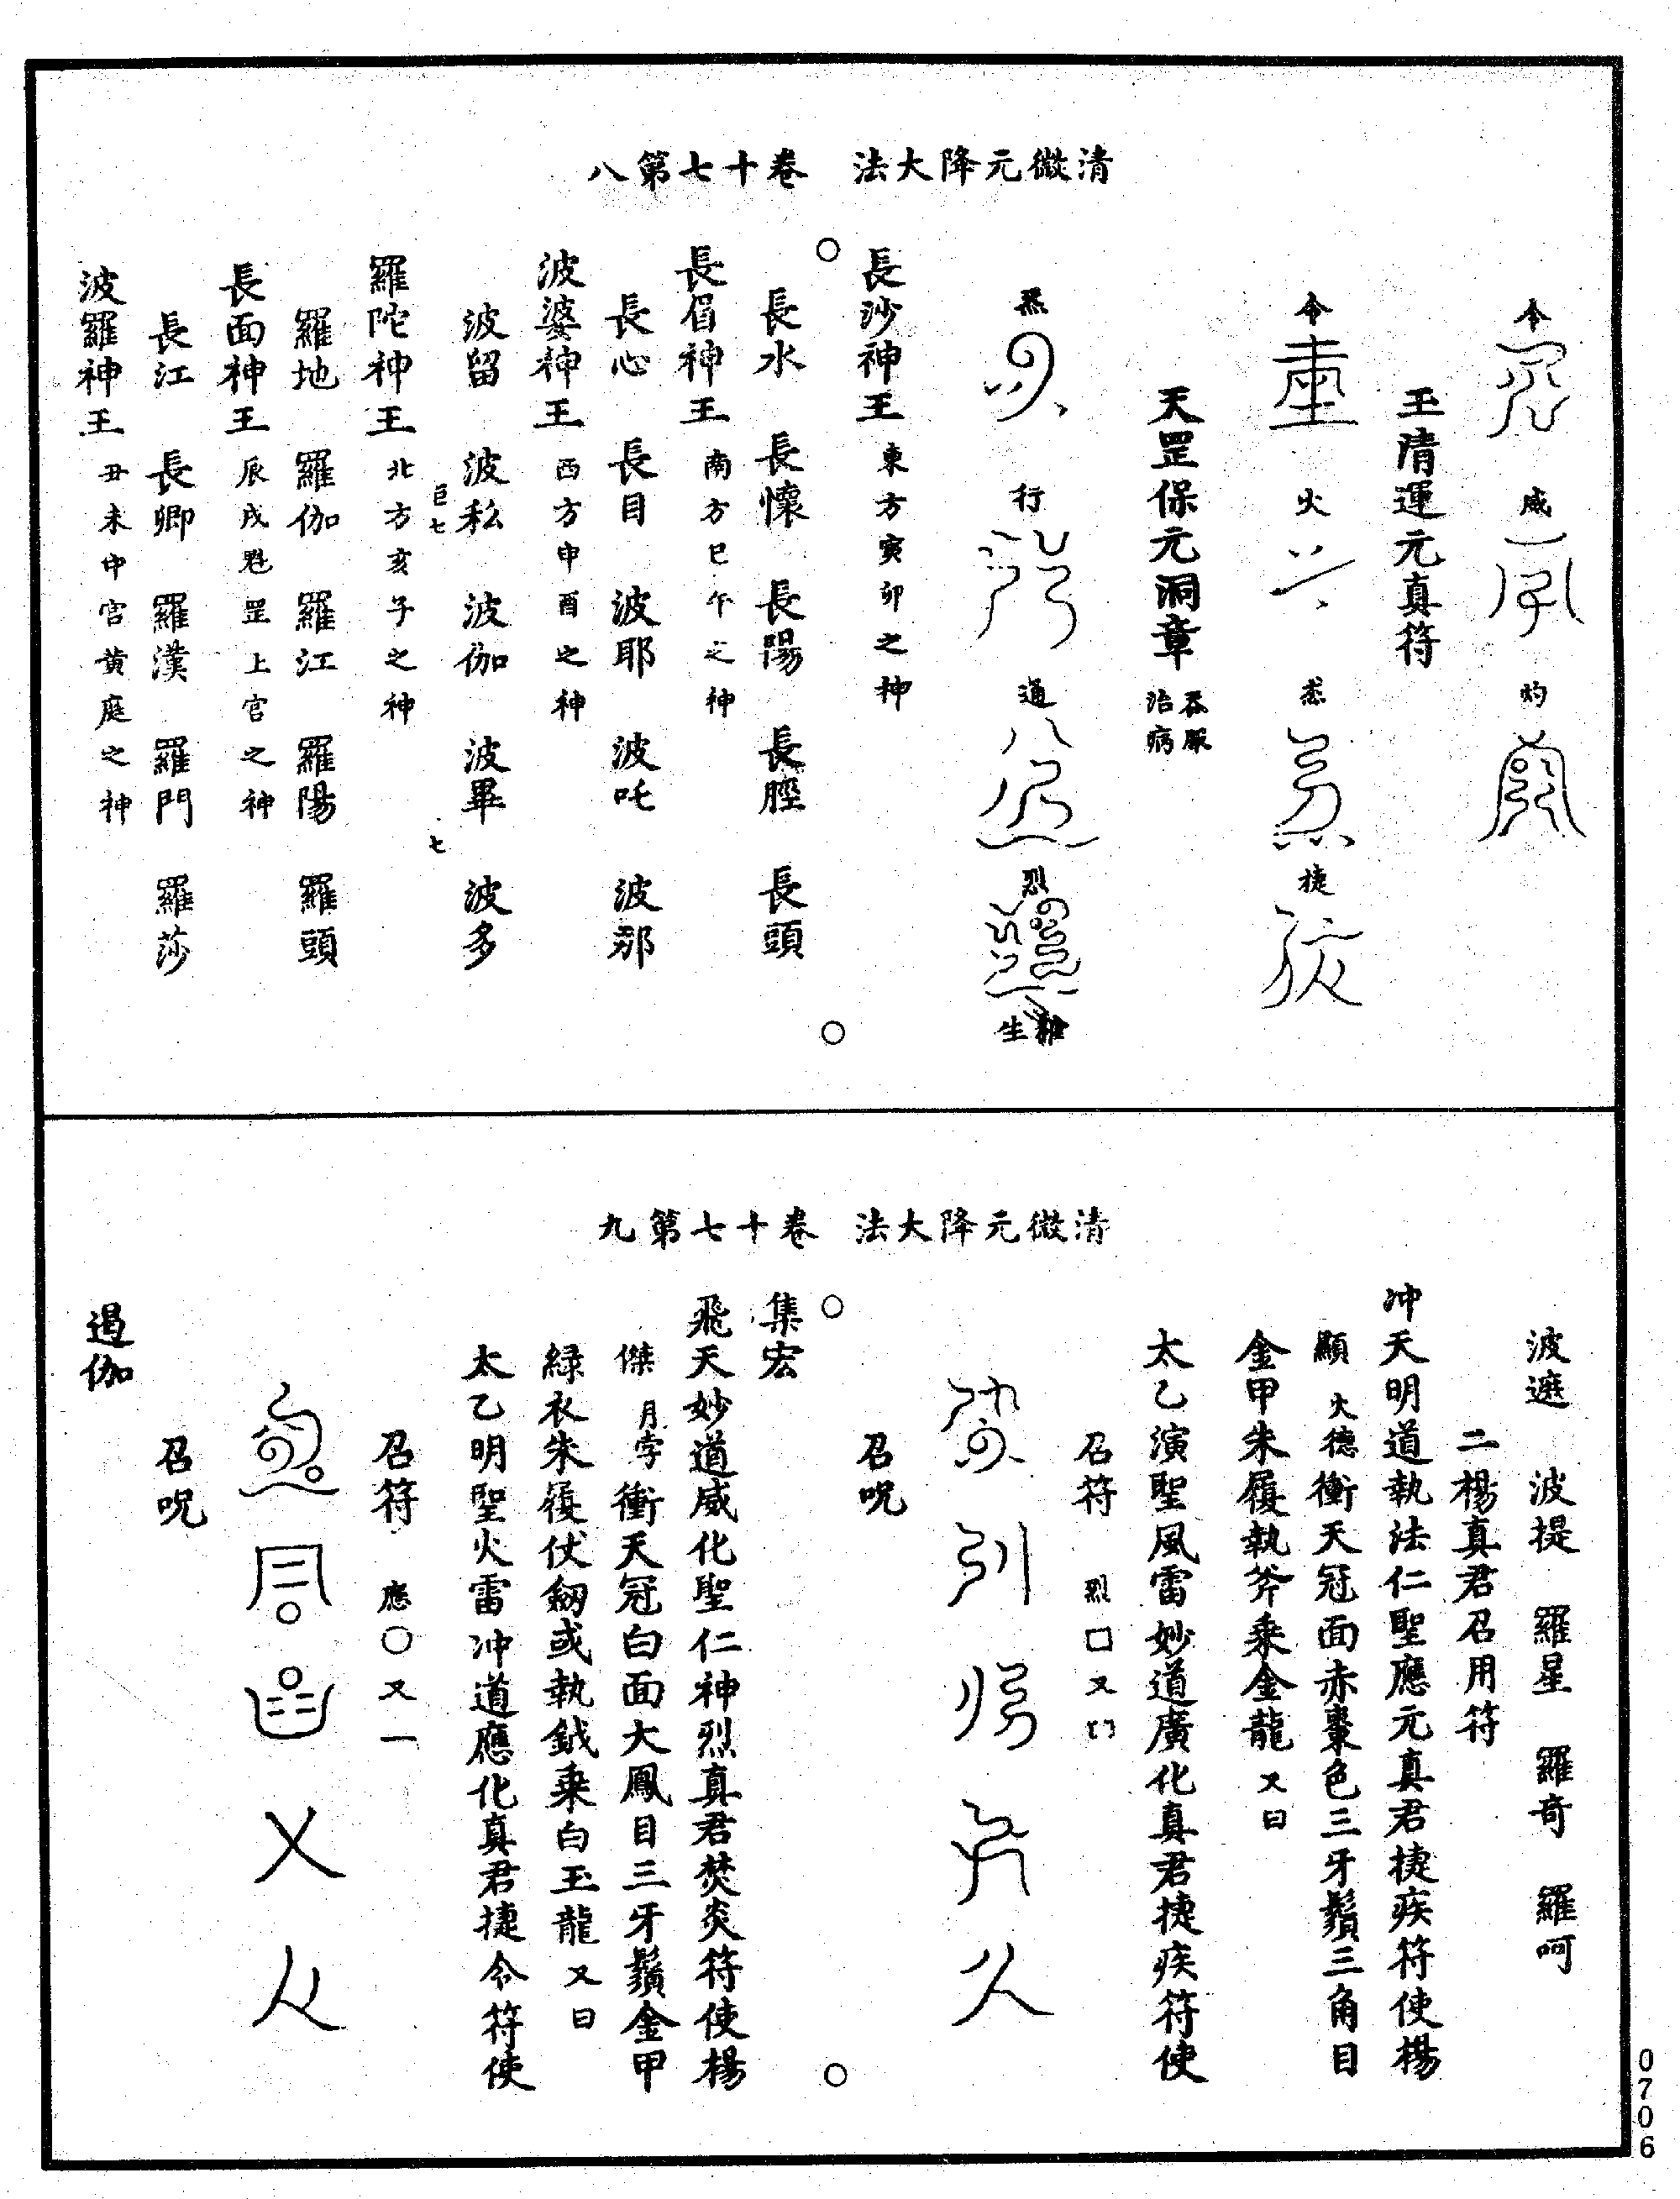 清微元降大法 卷十七第八
令 威 灼
玉清運元真符
令 火 悉 捷
天罡保元洞章 吞服治病
炁 行 道 烈 生
長沙神王 東方寅卯之神
長水 長懷 長陽 長脛 長頭
長眉神王 南方巳午之神
長心 長目 波耶 波吒 波那
波婆神王 西方申酉之神
波留 波私 波伽 波畢 波多
巨七 七
羅陀神王 北方亥子之神
羅地 羅伽 羅江 羅陽 羅頭
長面神王 辰戌魁罡上宮之神
長江 長卿 羅漢 羅門 羅莎
波羅神王 丑未中宮黃庭之神
清微元降大法 卷十七第九
波遮 波提 羅星 羅奇 羅呵
二楊真君召用符
冲天明道執法仁聖應元真君捷疾符使楊
顯 火德 衝天冠面赤棗色三牙鬚三角目
金甲朱履執斧乘金龍 又曰
太乙演聖風雷妙道廣化真君捷疾符使
召符 烈口又
召呪
集宏
飛天妙道威化聖仁神烈真君焚炎符使楊
傑 月孛 衝天冠白面大鳳目三牙鬚金甲
緑衣朱履仗劒或執鉞乘白玉龍 又曰
太乙明聖火雷冲道應化真君捷令符使
召符 應〇又一
召呪
遏伽
0706